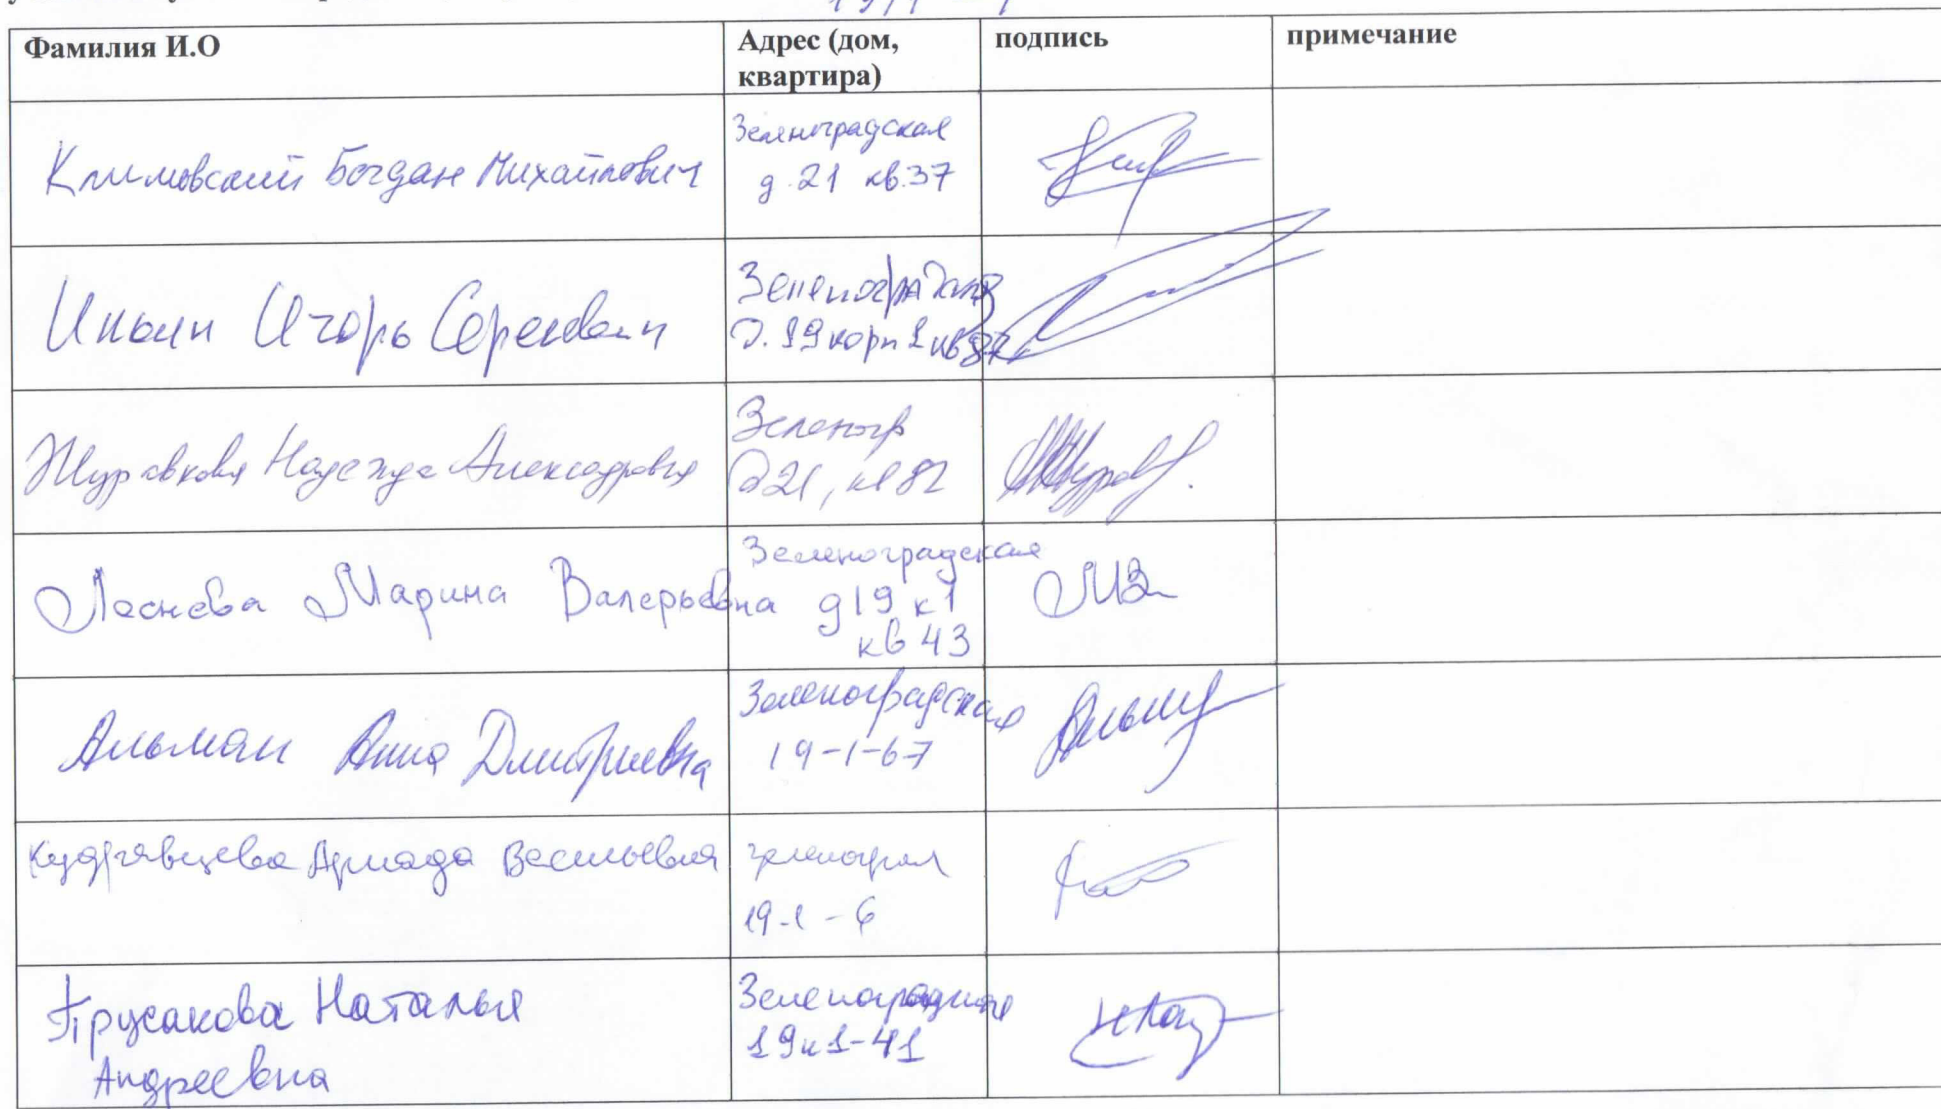 Фамилия И.О
Адрес (дом,
квартира)
подпись
примечание
Климовский Богдан Михайлович
Зеленоградская
д. 21 кв. 37
Ильин Игорь Сергеевич
Зеленоградская
д. 19 корп 1 кв
Надежда Александровна
Зеленогр
д 21, кв 82
Марина Валерьевна
Зеленоградская
д 19 к 1
кв 43
Альман Анна Дмитриевна
Зеленоградская
19-1-67
Кудрявцева Ариада Васильевна
19-1-6
Прусакова Наталья
Андреевна
Зеленоградская
19к1-41